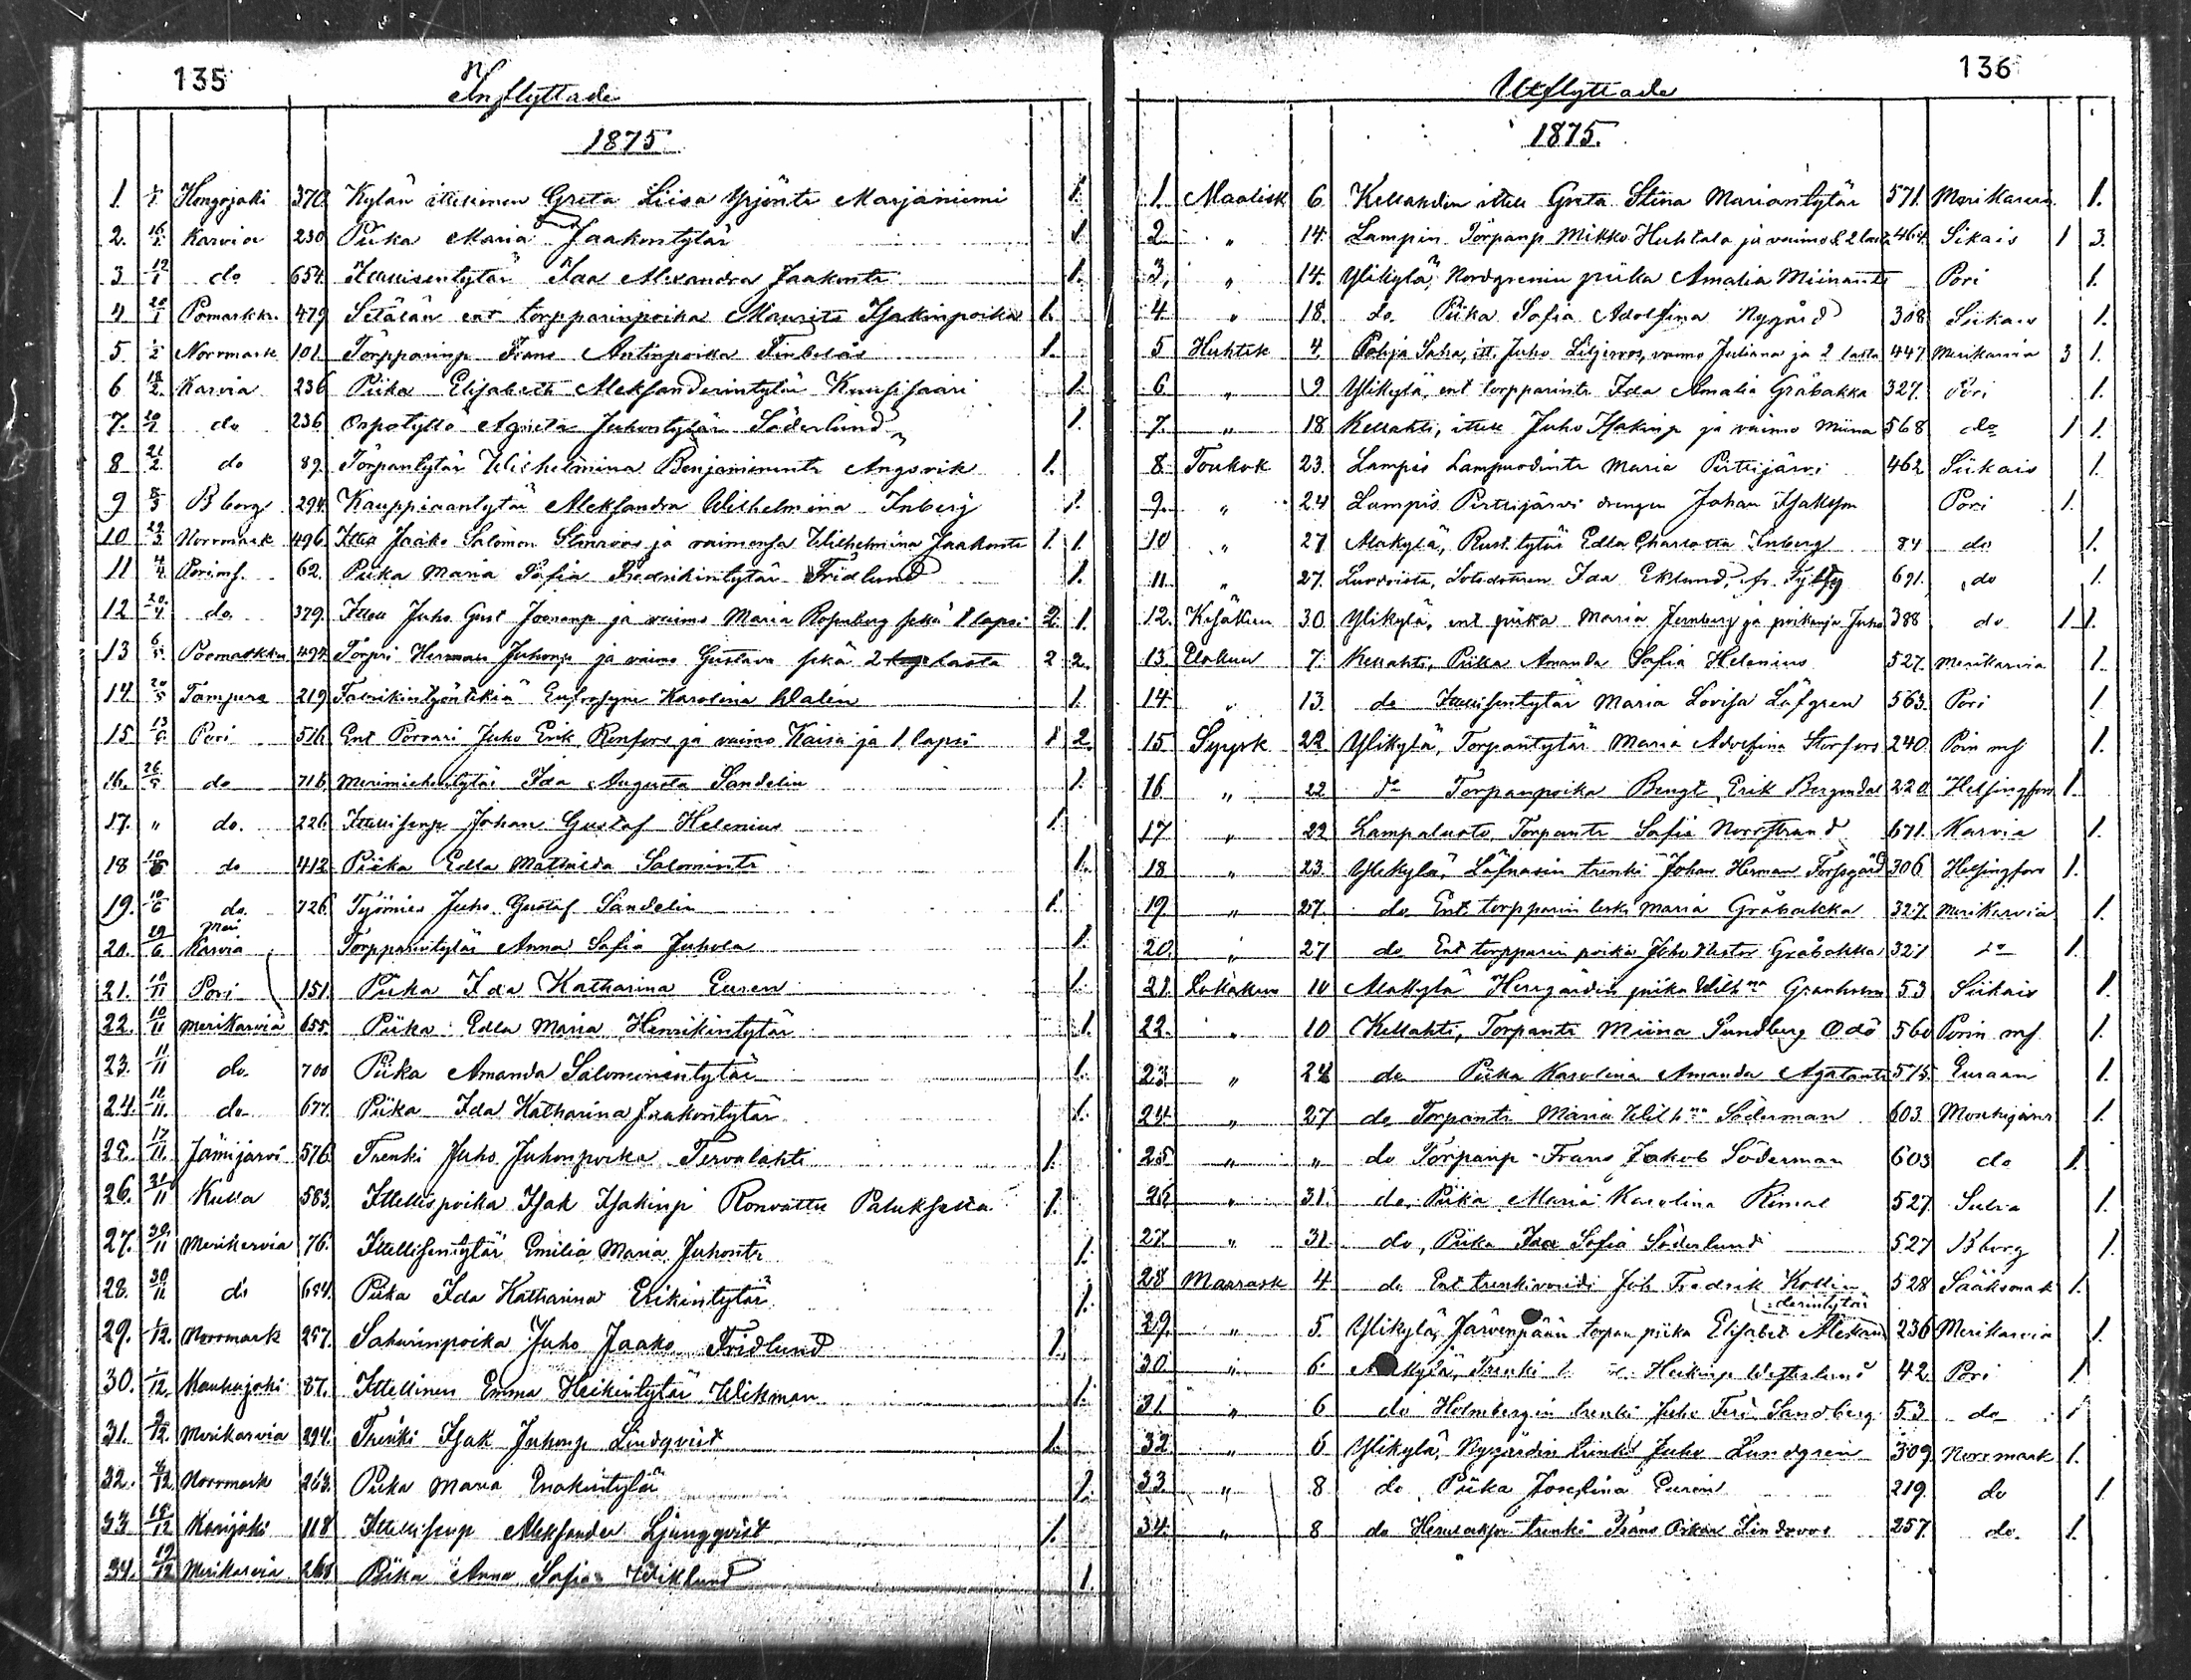 135
Inflyttade
1875
1. 1/1 Hongojoki 370 Kylän ittellinen Greta Liisa Yrjönt: Marjaniemi 1.
2. 16/1 Karvia 230 Piika Maria Jaakontytär 1.
3 12/1 do 654. Ittellisentytär Ida Alexandra Jaakont: 1.
4 20/1 Pomarkku 479 Setälän ent torpparinpoika Maurits Isakinpoika 1.
5. 1/2 Norrmark 101. Torpparinp Frans Antinpoika Finbeläs 1.
6 18/2 Karvia 236 Piika Elisabeth Aleksanderintytär Kuusisaari 1.
7. 20/2 do 236 Orpotyttö Agneta Juhontytär Söderlund 1.
8 21/2 do 89. Torpantytär Wilhelmina Benjaminint: Angsvik 1.
9 8/3 Bborg 294. Kauppiaantytär Aleksandra Wilhelmina Inberg 1.
10 29/3 Norrmark 496. Ittel Jaako Salomon Stenroos ja vaimonsa Wilhelmina Jaakont: 1. 1.
11 4/4 Porimf. 62. Piika Maria Sofia Fredrikintytär Fridlund 1.
12 20/4 do. 379. Ittell Juho Gust Joonanp ja vaimo Maria Rosenberg sekä 1 lapsi 2. 1.
13 6/5 Poomarkku 494. Torpri Herman Juhonp ja vaimo Gustava sekä 2 lasta 2 2.
14 20/5 Tampere 219. Fabrikintyöntekiä Eufrosyne Karolina Dalin 1.
15 13/6 Pori 516. Ent Porvari Juho Erik Renfors ja vaimo Kaisa ja 1 lapsi 1 2.
16. 26/5 do 716. Merimiehentytär Ida Augusta Sandelin 1.
17. " do. 226. Ittellisenp Johan Gustaf Helenius 1.
18 10/6 do 412. Piika Edla Mathilda Salomint: 1.
19. 10/6 do. 726. Työmies Juho Gustaf Sandelin 1.
20. 19/6 Meri Karvia Torpparintytär Anna Sofia Juhola 1.
21. 10/11 Pori 151. Piika Ida Katharina Euren 1.
22. 10/11 Merikarvia 655. Piika Edla Maria Henrikintytär 1.
23. 11/11 do. 700 Piika Amanda Salomonintytär 1.
24. 12/11. do 677. Piika Ida Katharina Jaakontytär 1.
25. 17/11 Jämijärvi 576. Trenki Juho Juhonpoika Tervalahti 1.
26. 21/11 Kulla 583. Ittellispoika Isak Isakinp Ronvattu Paluksesta 1.
27. 30/11 Merikarvia 76. Ittellisentytär Emilia Maria Juhont: 1.
28. 30/11 do 654. Piika Ida Katharina Erikintytär 1.
29. 1/12. Norrmark 257. Sahurinpoika Juho Jaako Fridlund 1.
30. 1/12. Kauhajoki 87. Ittellinen Emma Heikintytär Wikman 1.
31. 2/12. Merikarvia 294. Trenki Isak Juhonp Lindqvist 1.
32. 8/12. Norrmark 263. Piika Maria Enokintytär 1.
33 15/12 Karijoki 118 Ittellisenp Aleksander Ljungqvist 1.
34. 19/12 Merikarvia 268 Piika Anna Sofia Wiklund 1.
136
Utflyttade
1875.
1. Maalisk 6. Kellahden ittell Greta Stina Mariantytär 571. Merikarvia 1.
2. " 14. Lampin Torpanp Mikko Huhtala ja vaimo & 2 lasta 464. Siikais 1 3.
3. " 14. Ylikylä, Nordgrenin piika Amalia Miinant: Pori 1.
4. " 18. do. Piika Sofia Adolfina Nygård 308 Siikais 1.
5 Huhtik 4. Pohja Saha, itt. Juho Liljeroos, vaimo Juliana ja 2 lasta 447 Merikarvia 3 1.
6 " 9 Ylikylä, ent torpparint: Ida Amalia Gråbakka 327. Pori 1.
7. " 18 Kellahti, ittell Juho Isakinp ja vaimo Miina 568 do 1 1.
8. Toukok 23. Lampis Lampuodint: Maria Pirttijärvi 462 Siikais 1.
9. " 24 Lampis Pirttijärvi drengen Johan Isaksson Pori 1.
10 " 27 Alakylä, Rust. tytär Edla Charlotta Inberg 84 do 1.
11. " 27. Ida Eklund, 691. do 1.
12. Kesäkuu 30. Ylikylä, ent piika Maria Jernberg ja poikansa Juho 388 do 1 1.
13. Elokuu 7. Kellahti, Piika Amanda Sofia Helenius 527. Merikarvia 1.
14 " 13. do Ittellisentytär Maria Lovisa Löfgren 563. Pori 1
15. Syysk 22. Ylikylä, Torpantytär Maria Adolfina Storfors 240. Porin mf 1.
16 " 22 do Torpanpoika Bengt Erik Bergendal 220. Helsingfors 1.
17 " 22 Lampaluoto, Torpant: Sofia Norrstrand 671. Karvia 1.
18 " 23. Ylikylä, Löfnasin trenki Johan Herman Forsgård 306. Helsingfors 1.
19. " 27. do. Ent. torpparin leski Maria Gråbakka 327. Merikarvia 1.
20. " 27 do Ent torpparin poika Juho Nestor Gråbakka 327 do 1.
21. Lokakuu 10 Alakylä Herrgårdin piika Wilhna Granholm 53 Siikais 1.
22. " 10 Kellahti, Torpant: Miina Sundberg Odö 560 Porin mf 1.
23 " 24 do Piika Karolina Amanda Agatant: 575. Euraan 1.
24. " 27 do, Torpant: Maria Wilhna Söderman 603. Mouhijärvi 1.
25. " " do Torpanp Frans Jakob Söderman 603 do 1.
26. " 31. do Piika Maria Karolina Rimal 527. 1.
27. " 31. do, Piika Ida Sofia Söderlund 527 Bborg 1.
28 Marrask 4 do Ent trenkivouti Joh Fredrik Kollin 528 Sääksmäk 1.
29. " 5. Ylikylä, Järvenpään torpan piika Elisabet Aleksanderintytär 236 Merikarvia 1.
30 " 6. Alakylä, Trenki Heikinp Westerlund 42. Pori 1
31. " 6 do Holmbergin trenki Juho Ferd Sandberg 53 do 1
32 " 6 Ylikylä, Nygårdin trenki Juho Lundgrein 309 Norrmark 1.
33. " 8 do Piika Josefina Eurén 219. do 1.
34. " 8 do trenki Frans Oskar Lindroos 257. do. 1.